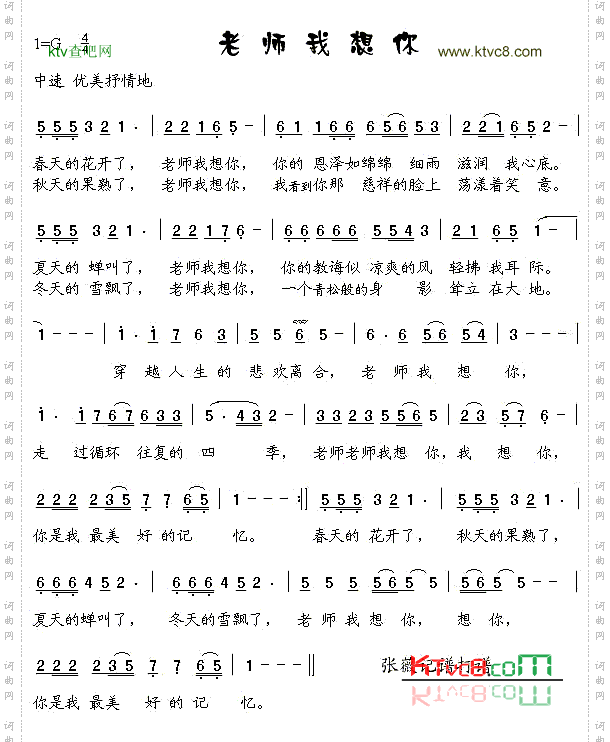 1=G 4/4
ktv查吧网
老师我想你
www.ktvc8.com
中速 优美抒情地
5 5 5 3 2 1 · | 2 2 1 6 5 – | 6 1 1 6 6 6 5 6 5 3 | 2 2 1 6 5 2 – |
春天的花开了， 老师我想你， 你的 恩泽如绵绵 细雨 滋润 我心底。
秋天的果熟了， 老师我想你， 我看到你那 慈祥的脸上 荡漾着笑 意。
5 5 5 3 2 1 · | 2 2 1 7 6 – | 6 6 6 6 6 5 5 4 3 | 2 2 1 6 5 | 1 –
夏天的 蝉叫了， 老师我想你， 你的教诲似 凉爽的风 轻拂我耳 际。
冬天的 雪飘了， 老师我想你， 一个青松般的身 影 耸立 在大 地。
1 – – – | 1 · 1 7 6 3 | 5 5 6 5 – | 6 · 6 5 6 5 4 | 3 – – – |
穿 越人生的 悲欢离合， 老 师我 想 你，
1 · 1 7 6 7 6 3 3 | 5 · 5 4 3 2 – | 3 3 2 3 5 5 6 5 | 2 3 5 7 | 6 – –
走 过循环 往复的 四 季， 老师老师我想 你，我 想 你，
2 2 2 2 2 3 5 7 7 6 5 | 1 – – – :‖ 5 5 5 3 2 1 · | 5 5 5 3 2 1 · |
你是我 最美 好 的记 忆。 春天的 花开了， 秋天的果熟了，
6 6 6 4 5 2 · | 6 6 6 4 5 2 · | 5 5 6 5 6 5 | 5 6 5 | 1 – – |
夏天的蝉叫了， 冬天的雪飘了， 老 师 我 想 你， 想 你，
2 2 2 2 2 3 5 7 7 6 5 | 1 – – ‖
张薇记谱打谱
Ktvc8com
你是我 最美 好 的 记 忆。
词曲网